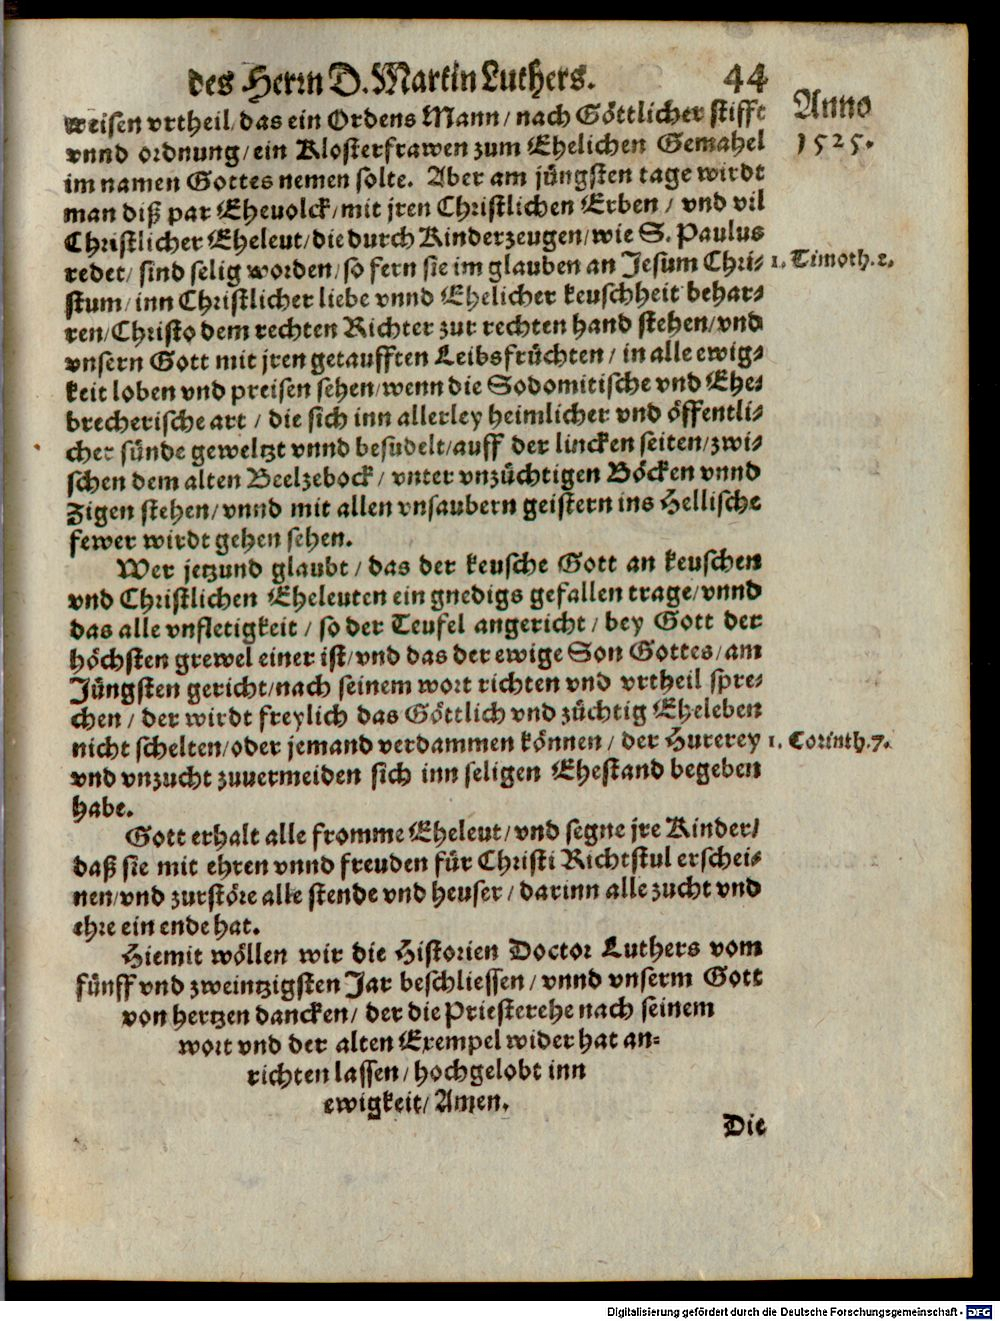 des Herrn D. Martin Luthers. 44
Anno
1525.
weisen vrtheil/ das ein Ordens Mann/ nach Göttlicher stifft
vnnd ordnung/ ein Klosterfrawen zum Ehelichen Gemahel
im namen Gottes nemen solte. Aber am jüngsten tage wirdt
man diß par Eheuolck/ mit jren Christlichen Erben/ vnd vil
Christlicher Eheleut/ die durch Kinderzeugen/ wie S. Paulus
redet/ sind selig worden/ so fern sie im glauben an Jesum Chri-
1. Timoth. 2.
stum/ inn Christlicher liebe vnnd Ehelicher keuschheit behar-
ren/ Christo dem rechten Richter zur rechten hand stehen/ vnd
vnsern Gott mit jren getaufften Leibsfrüchten/ in alle ewig-
keit loben vnd preisen sehen/ wenn die Sodomitische vnd Ehe-
brecherische art/ die sich inn allerley heimlicher vnd öffentli-
cher sünde geweltzt vnnd besudelt/ auff der lincken seiten/ zwi-
schen dem alten Beelzebock/ vnter vnzüchtigen Böcken vnnd
Zigen stehen/ vnnd mit allen vnsaubern geistern ins Hellische
fewer wirdt gehen sehen.
Wer jetzund glaubt/ das der keusche Gott an keuschen
vnd Christlichen Eheleuten ein gnedigs gefallen trage/ vnnd
das alle vnfletigkeit/ so der Teufel angericht/ bey Gott der
höchsten grewel einer ist/ vnd das der ewige Son Gottes/ am
Jüngsten gericht/ nach seinem wort richten vnd vrtheil spre-
chen/ der wirdt freylich das Göttlich vnd züchtig Eheleben
nicht schelten/ oder jemand verdammen können/ der Hurerey
1. Corinth. 7.
vnd vnzucht zuuermeiden sich inn seligen Ehestand begeben
habe.
Gott erhalt alle fromme Eheleut/ vnd segne jre Kinder/
daß sie mit ehren vnnd freuden für Christi Richtstul erschei-
nen/ vnd zurstöre alle stende vnd heuser/ darinn alle zucht vnd
ehre ein ende hat.
Hiemit wöllen wir die Historien Doctor Luthers vom
fünff vnd zweintzigsten Jar beschliessen/ vnnd vnserm Gott
von hertzen dancken/ der die Priesterehe nach seinem
wort vnd der alten Exempel wider hat an-
richten lassen/ hochgelobt inn
ewigkeit/ Amen.
Die
Digitalisierung gefördert durch die Deutsche Forschungsgemeinschaft - DFG